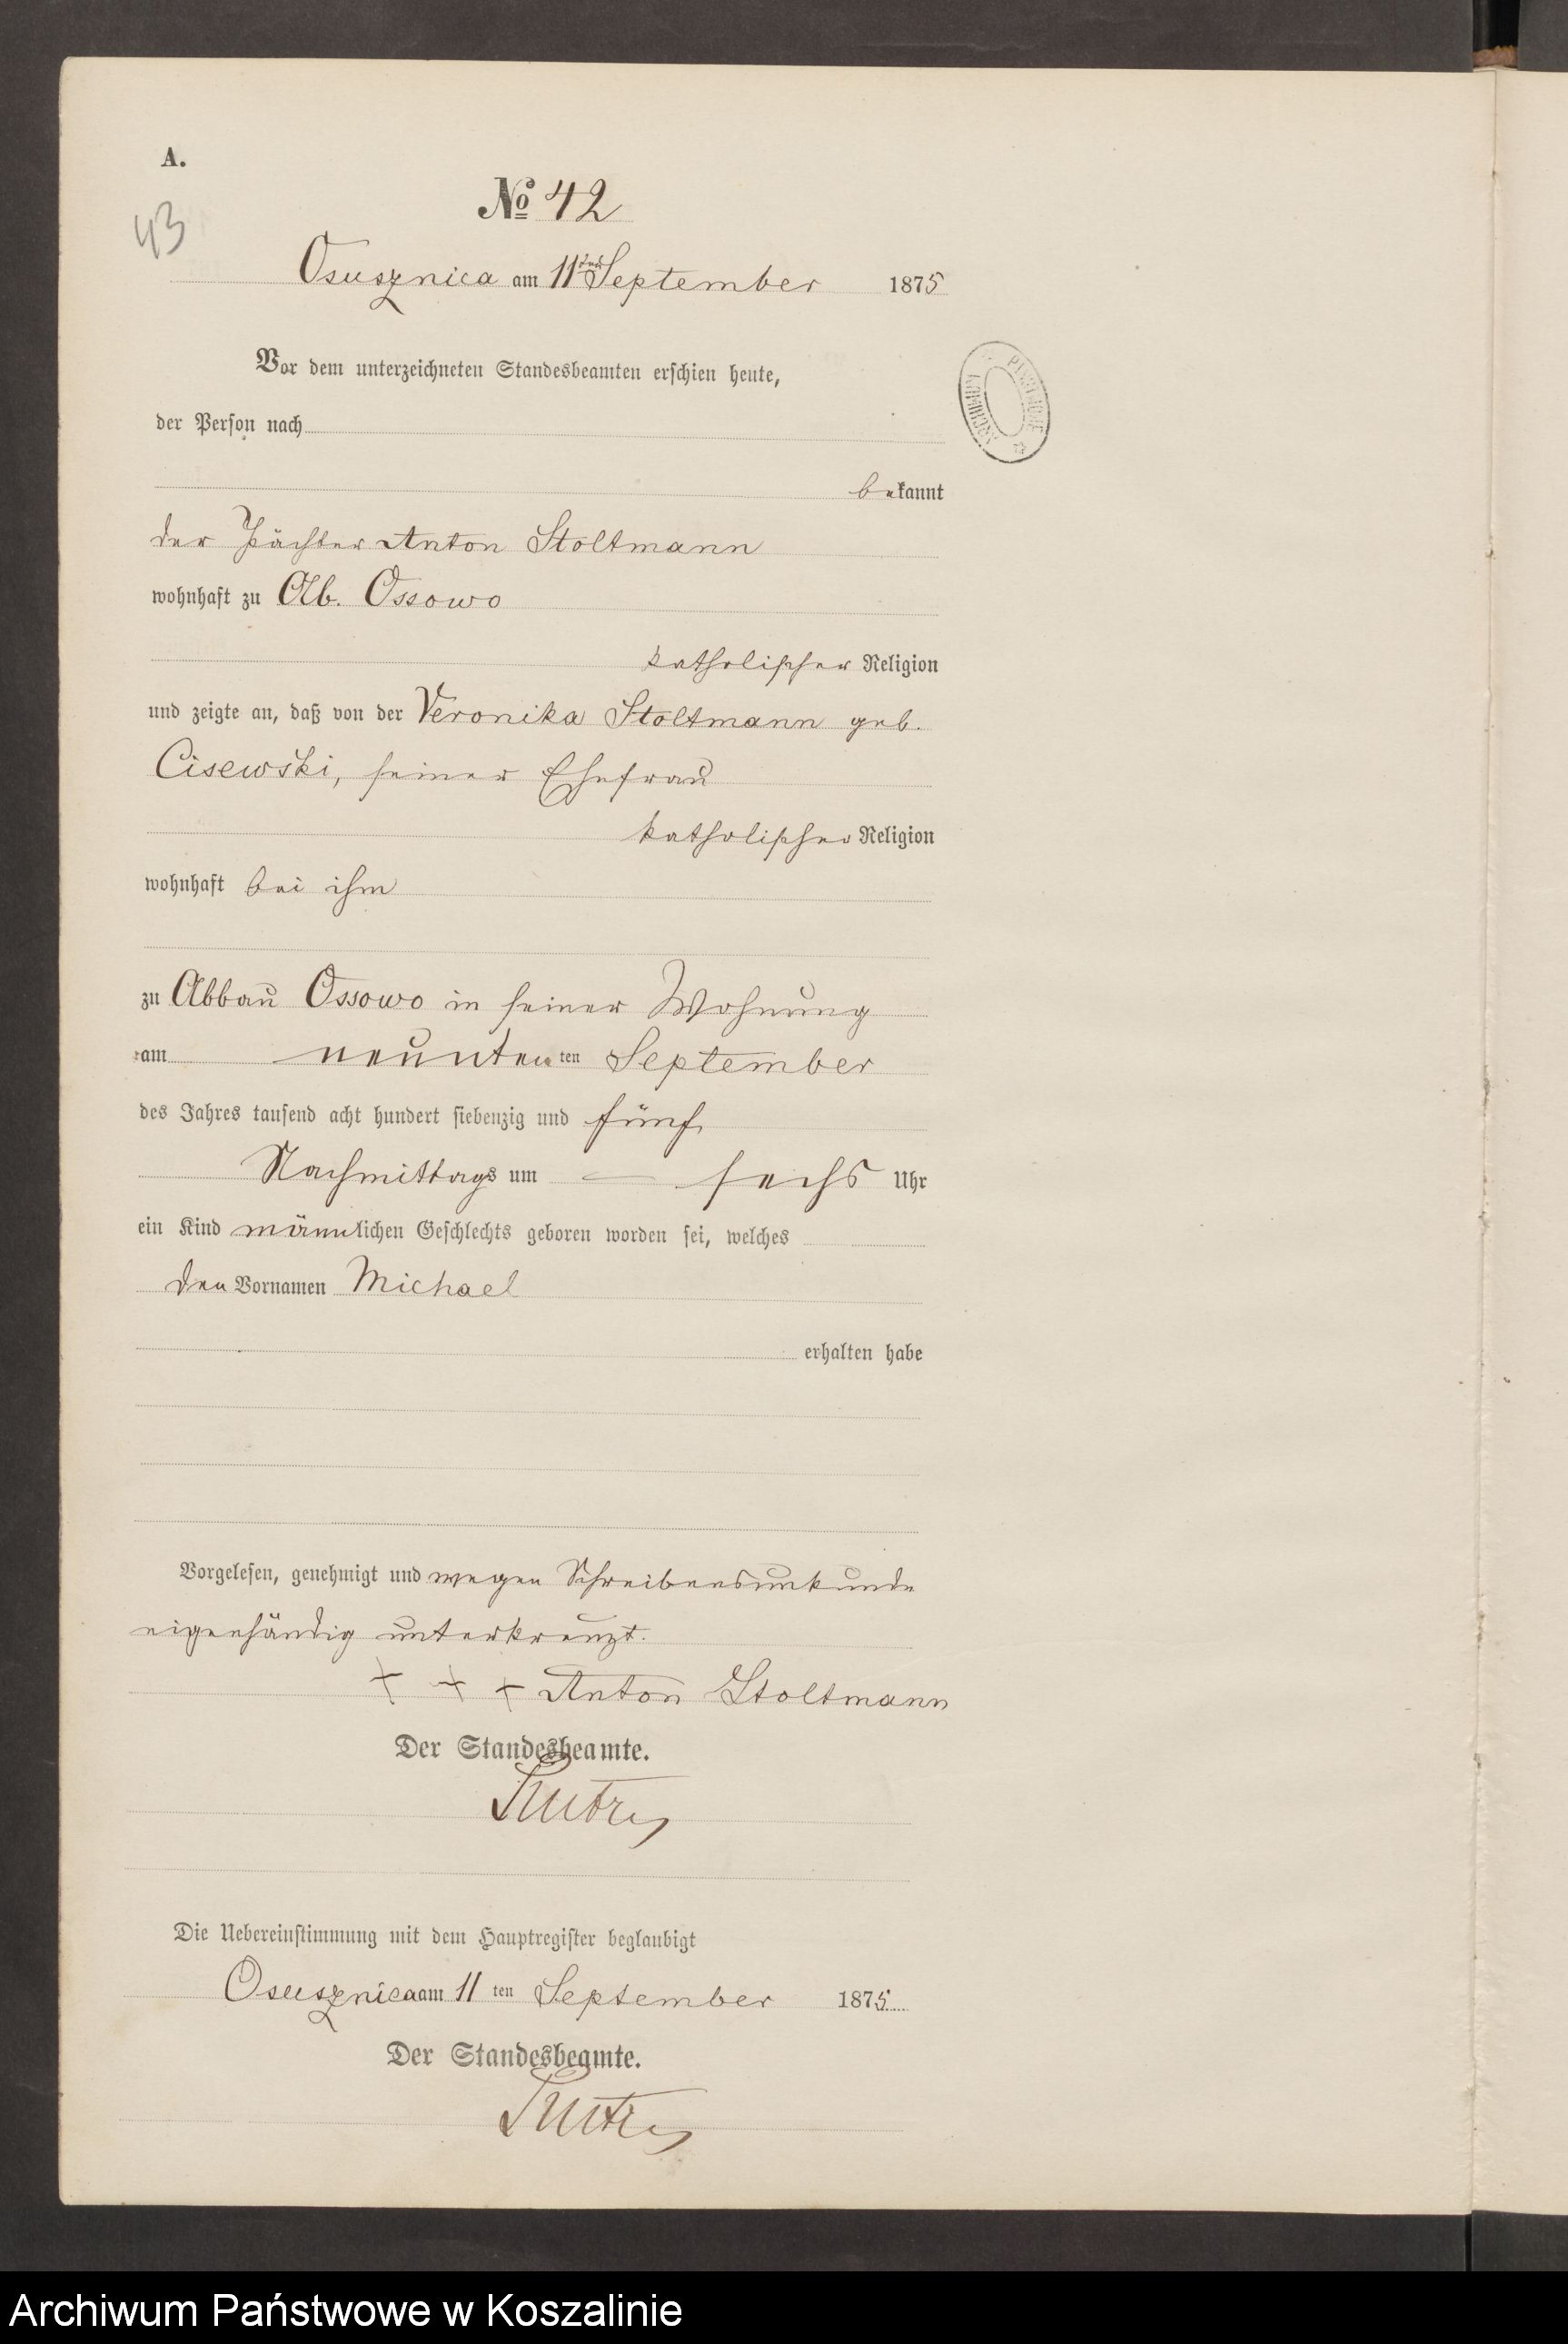 A.
43
No 42
Osusznica am 11ten September 1875
Vor dem unterzeichneten Standesbeamten erschien heute,
der Person nach
bekannt
der Pächter Anton Stoltmann
wohnhaft zu Ab. Ossowo
katholischer Religion
und zeigte an, daß von der Veronika Stoltmann geb.
Cisewski, seiner Ehefrau
katholischer Religion
wohnhaft bei ihm
zu Abbau Ossowo in seiner Wohnung
am neunten ten September
des Jahres tausend acht hundert siebenzig und fünf
Nachmittags um — sechs Uhr
ein Kind männlichen Geschlechts geboren worden sei, welches
den Vornamen Michael
erhalten habe
Vorgelesen, genehmigt und wegen Schreibensunkunde
eigenhändig unterkreuzt.
+ + + Anton Stoltmann
Der Standesbeamte.
Die Uebereinstimmung mit dem Hauptregister beglaubigt
Osusznica am 11 ten September 1875
Der Standesbeamte.
Archiwum Państwowe w Koszalinie